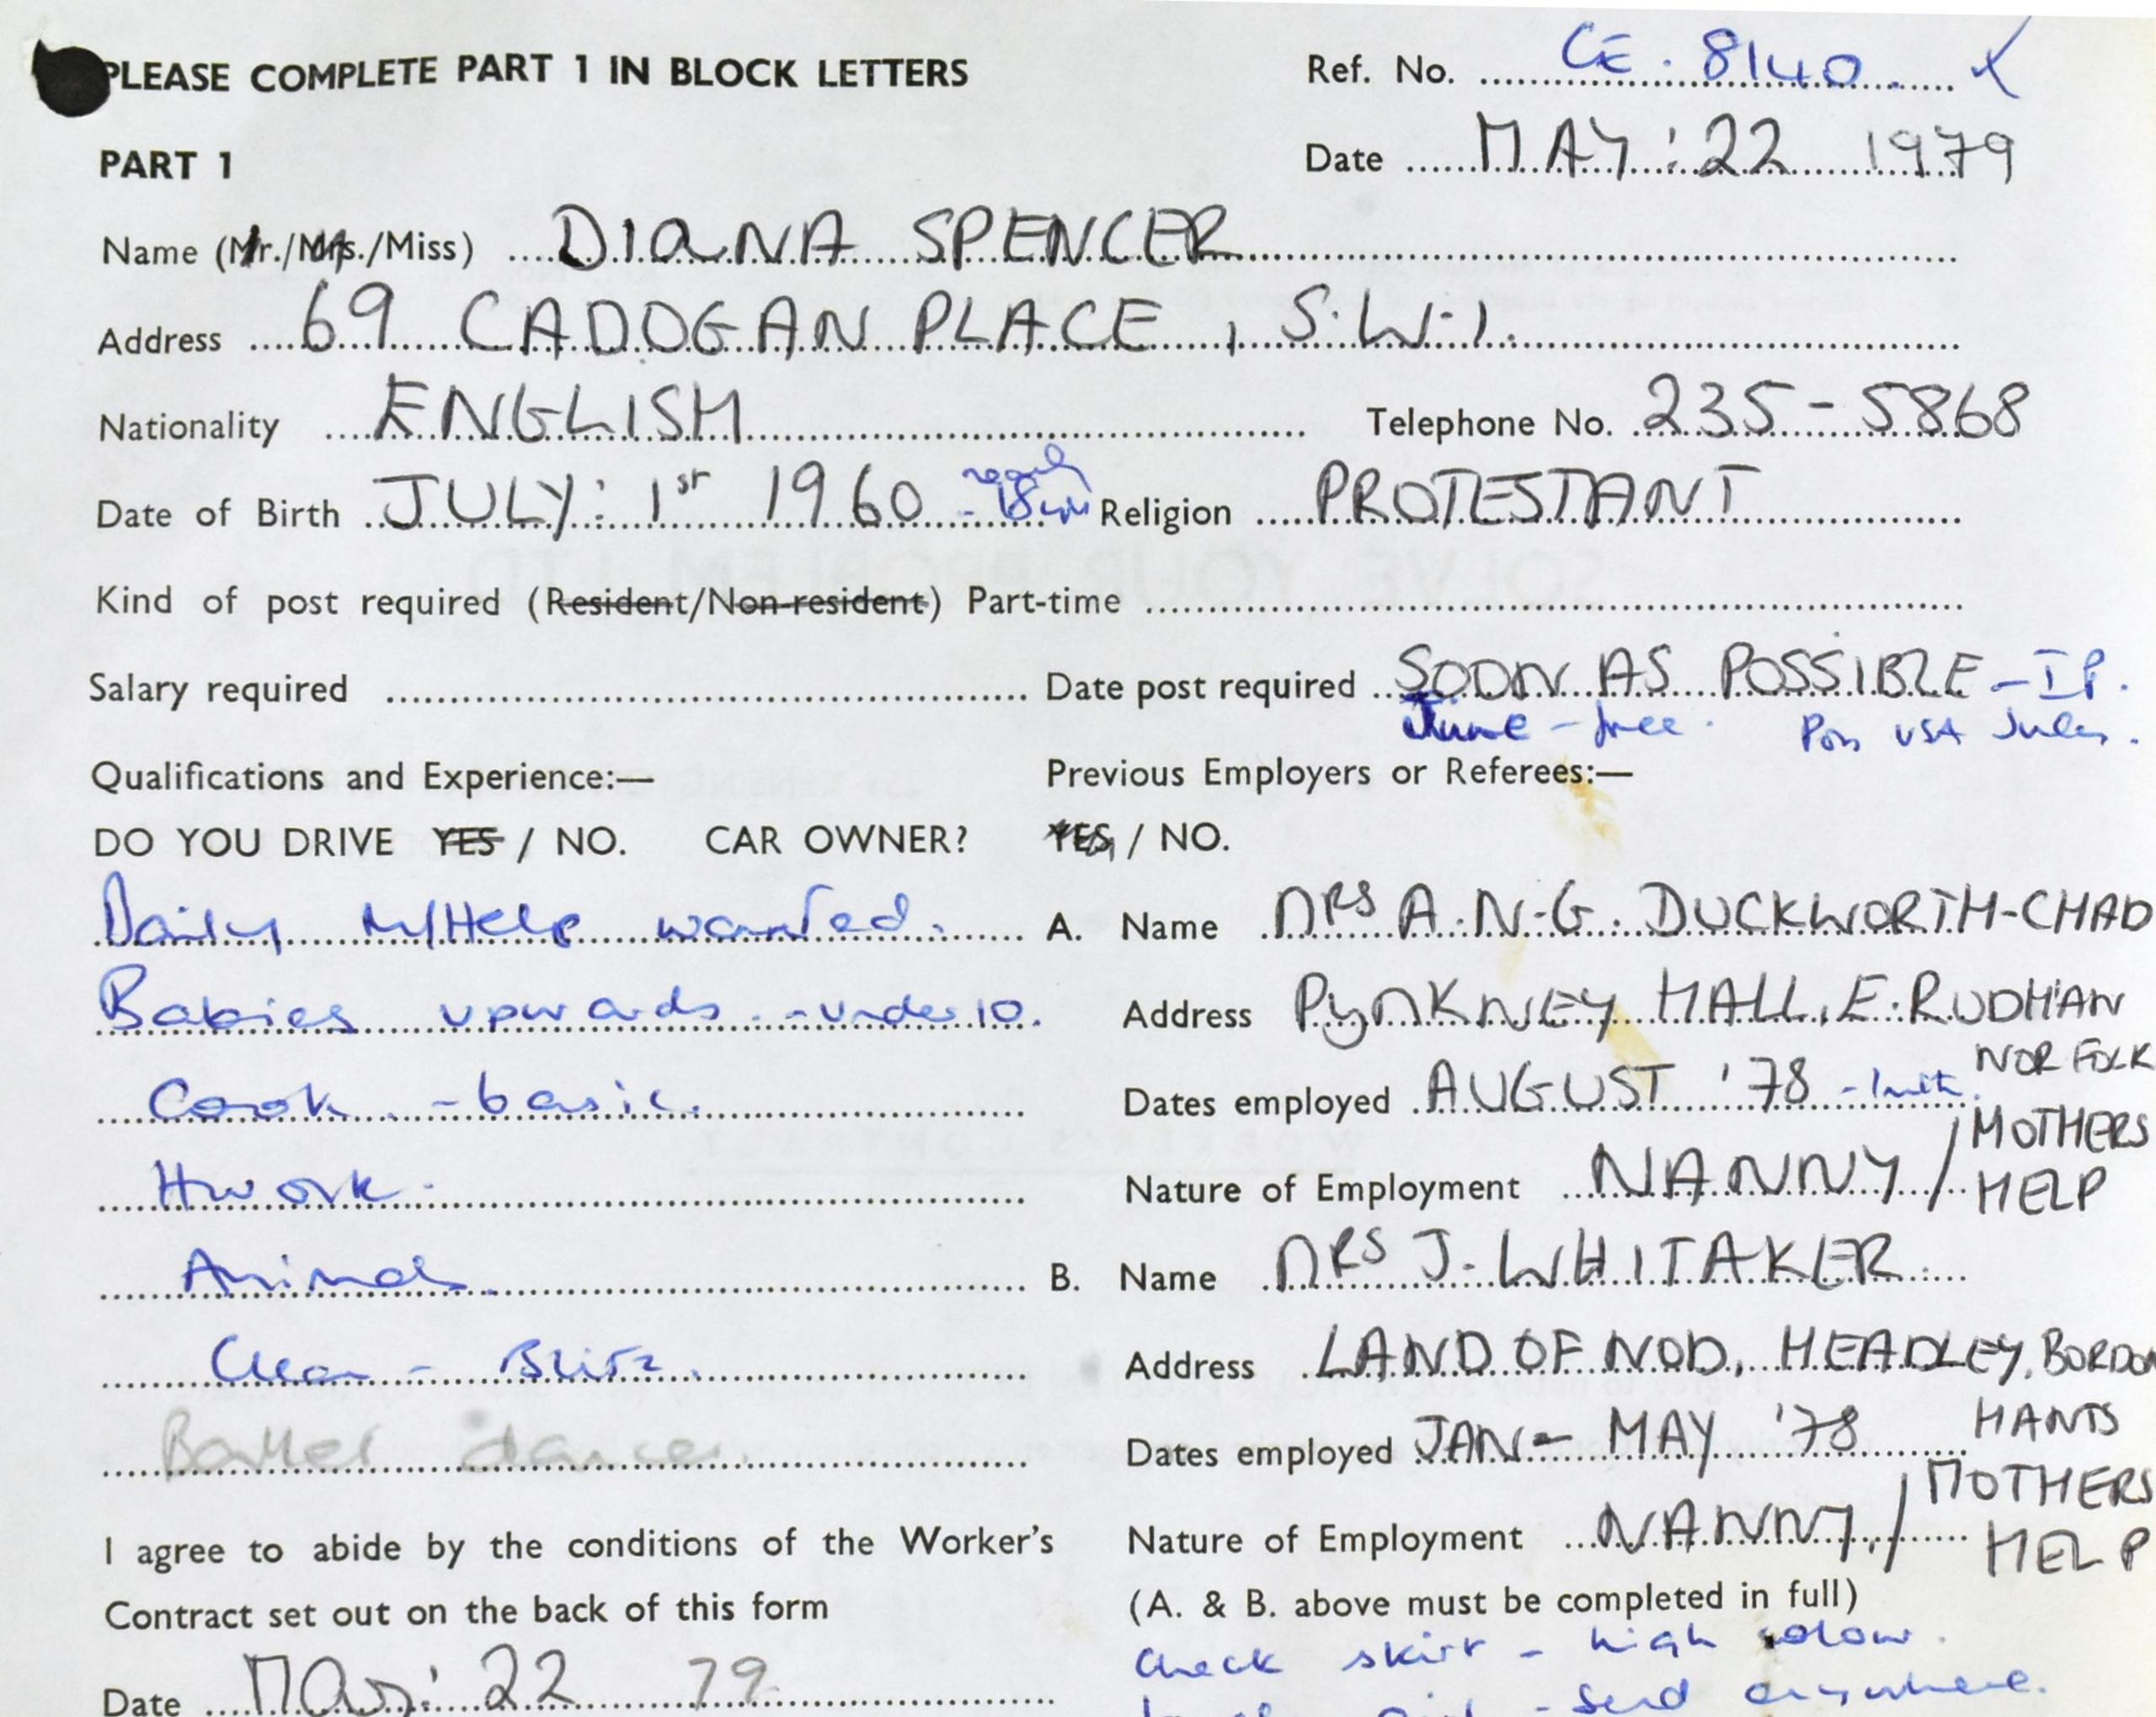 PLEASE COMPLETE PART 1 IN BLOCK LETTERS
Ref. No. CE. 8140.
PART 1
Date MAY: 22 1979
Name (Mr./Mrs./Miss) DIANA SPENCER
Address 69 CADOGAN PLACE, S.W.1.
Nationality ENGLISH Telephone No. 235-5868
Date of Birth JULY: 1st 1960 - nearly 19 Religion PROTESTANT
Kind of post required (Resident/Non-resident) Part-time
Salary required Date post required SOON AS POSSIBLE - I P.
June - free. Poss USA
Qualifications and Experience:— Previous Employers or Referees:—
DO YOU DRIVE YES / NO. CAR OWNER? YES / NO.
Daily M/Help wanted.
Babies upwards. - under 10.
Cook. - basic.
Hwork.
Animals.
Clean - Blitz.
Ballet dance.
A. Name MRS A.N.G. DUCKWORTH-CHAD
Address PYNKNEY HALL, E. RUDHAM
NORFOLK
Dates employed AUGUST '78 - 1 mth.
Nature of Employment NANNY / MOTHERS HELP
B. Name MRS J. WHITAKER
Address LAND OF NOD, HEADLEY, BORDON
HANTS
Dates employed JAN - MAY '78
Nature of Employment NANNY / MOTHERS HELP
(A. & B. above must be completed in full)
I agree to abide by the conditions of the Worker's
Contract set out on the back of this form
Date May: 22 79
Check skirt - high colour.
girl - send anywhere.